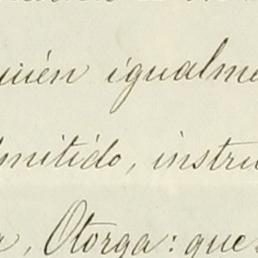 uién igualme
dmitido, instru
a, Otorga: que